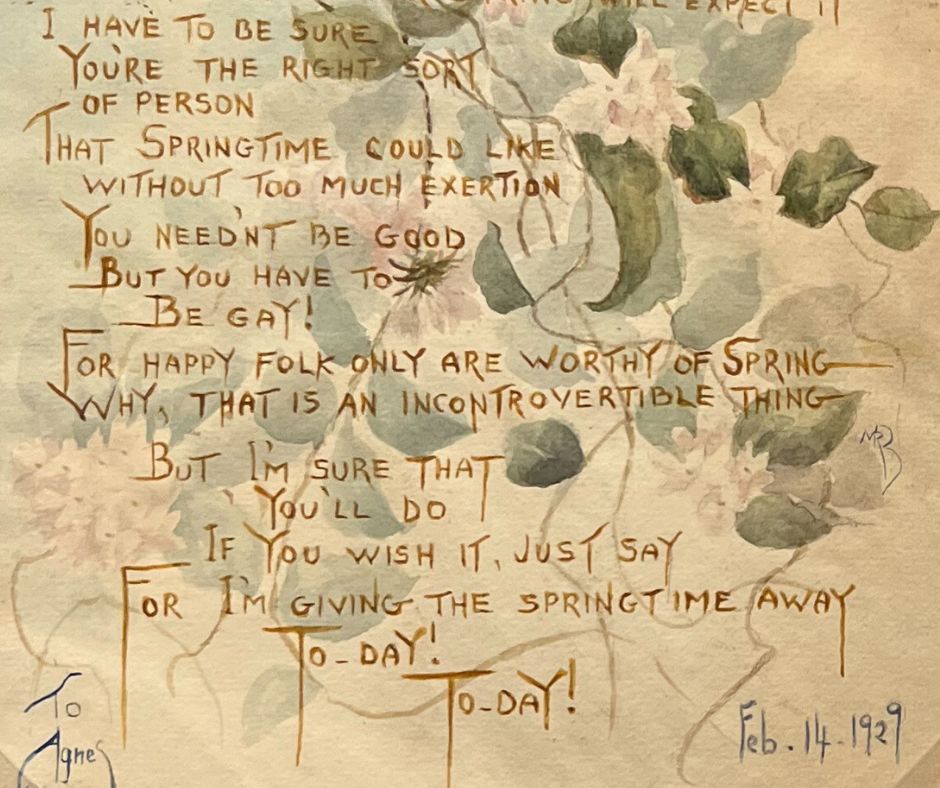 WILL EXPECT IT
I HAVE TO BE SURE
YOU'RE THE RIGHT SORT
OF PERSON
THAT SPRINGTIME COULD LIKE
WITHOUT TOO MUCH EXERTION
YOU NEEDN'T BE GOOD
BUT YOU HAVE TO
BE GAY!
FOR HAPPY FOLK ONLY ARE WORTHY OF SPRING
WHY, THAT IS AN INCONTROVERTIBLE THING
BUT I'M SURE THAT
YOU'LL DO
IF YOU WISH IT, JUST SAY
FOR I'M GIVING THE SPRINGTIME AWAY
TO-DAY!
TO-DAY!
To
Agnes
Feb. 14 - 1929